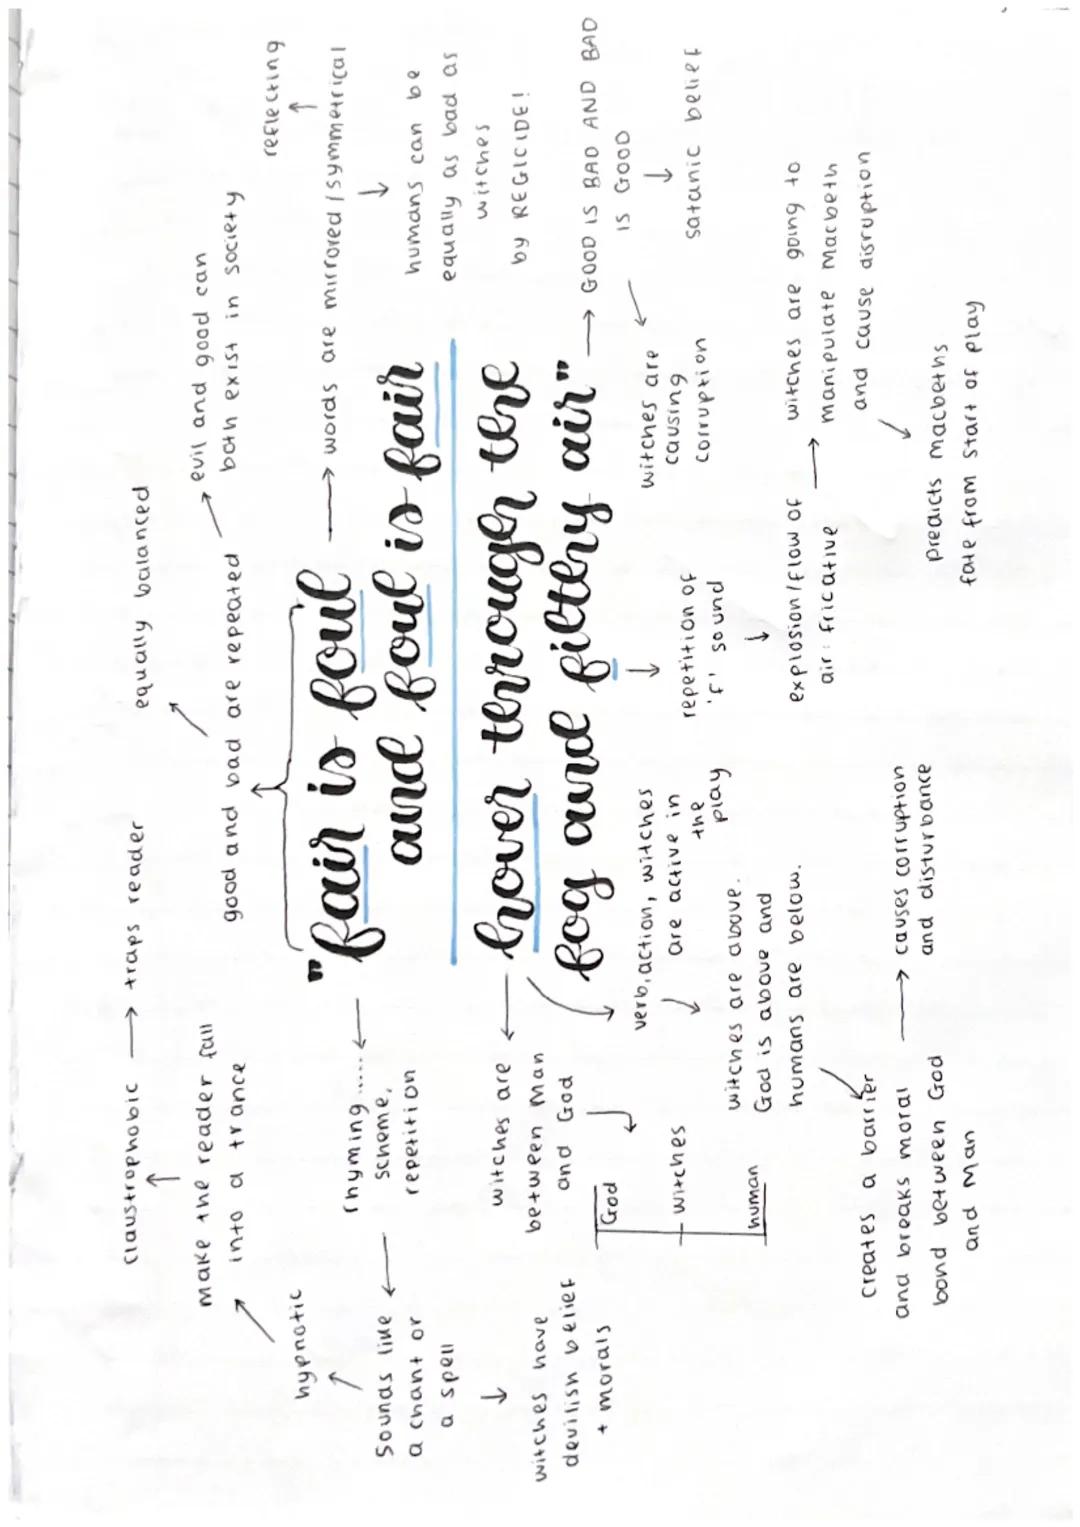 claustrophobic → traps reader
make the reader fall
into a trance
hypnotic
sounds like
a chant or
a spell
witches have
devilish belief
+ morals
equally balanced
good and bad are repeated
evil and good can
both exist in society
reflecting
words are mirrored / symmetrical
humans can be
equally as bad as
witches
by REGICIDE!
"fair is foul
and foul is fair
hover through the
fog and filthy air"
rhyming .....
scheme,
repetition
witches are
between Man
and God
God
witches
human
verb, action, witches
are active in
the
play
witches are above.
God is above and
humans are below.
creates a barrier
and breaks moral
bond between God
and Man
causes corruption
and disturbance
repetition of
'f' sound
explosion / flow of
air: fricative
witches are going to
manipulate Macbeth
and cause disruption
predicts macbeths
fate from start of play
GOOD IS BAD AND BAD
IS GOOD
satanic belief
witches are
causing
corruption